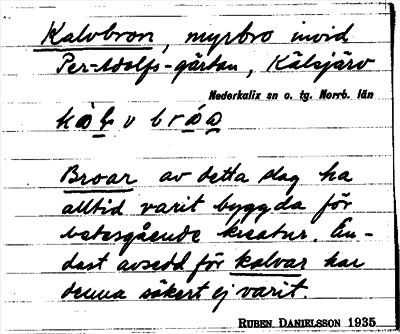 Kalvbron, myrbro invid
Per-Adolfs-gärdan, Kälsjärv
Nederkalix sn o. tg. Norrb. län
Broar av detta slag ha
alltid varit byggda för
betesgående kreatur. En-
dast avsedd för kalvar har
denna säkert ej varit.
RUBEN DANIELSSON 1935